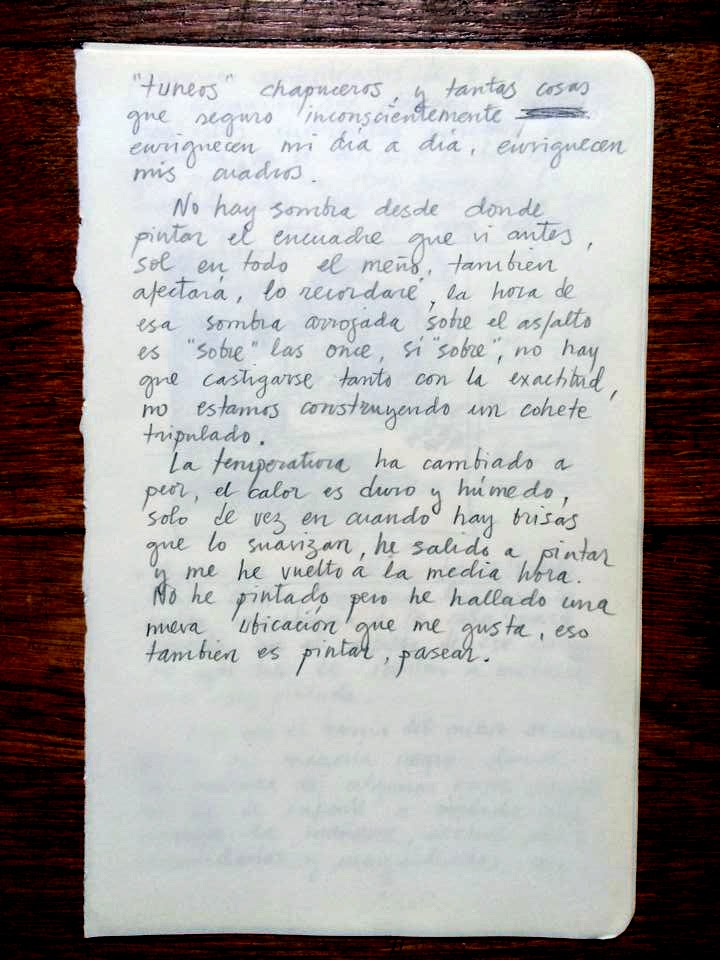 "tuneos" chapuceros, y tantas cosas
que seguro inconscientemente
enriquecen mi día a día, enriquecen
mis cuadros.
No hay sombra desde donde
pintar el encuadre que vi antes,
sol en todo el meño, también
afectará, lo recordaré, la hora de
esa sombra arrojada sobre el asfalto
es "sobre" las once, sí "sobre", no hay
que castigarse tanto con la exactitud,
no estamos construyendo un cohete
tripulado.
La temperatura ha cambiado a
peor, el calor es duro y húmedo,
solo de vez en cuando hay brisas
que lo suavizan, he salido a pintar
y me he vuelto a la media hora.
No he pintado pero he hallado una
nueva ubicación que me gusta, eso
también es pintar, pasear.